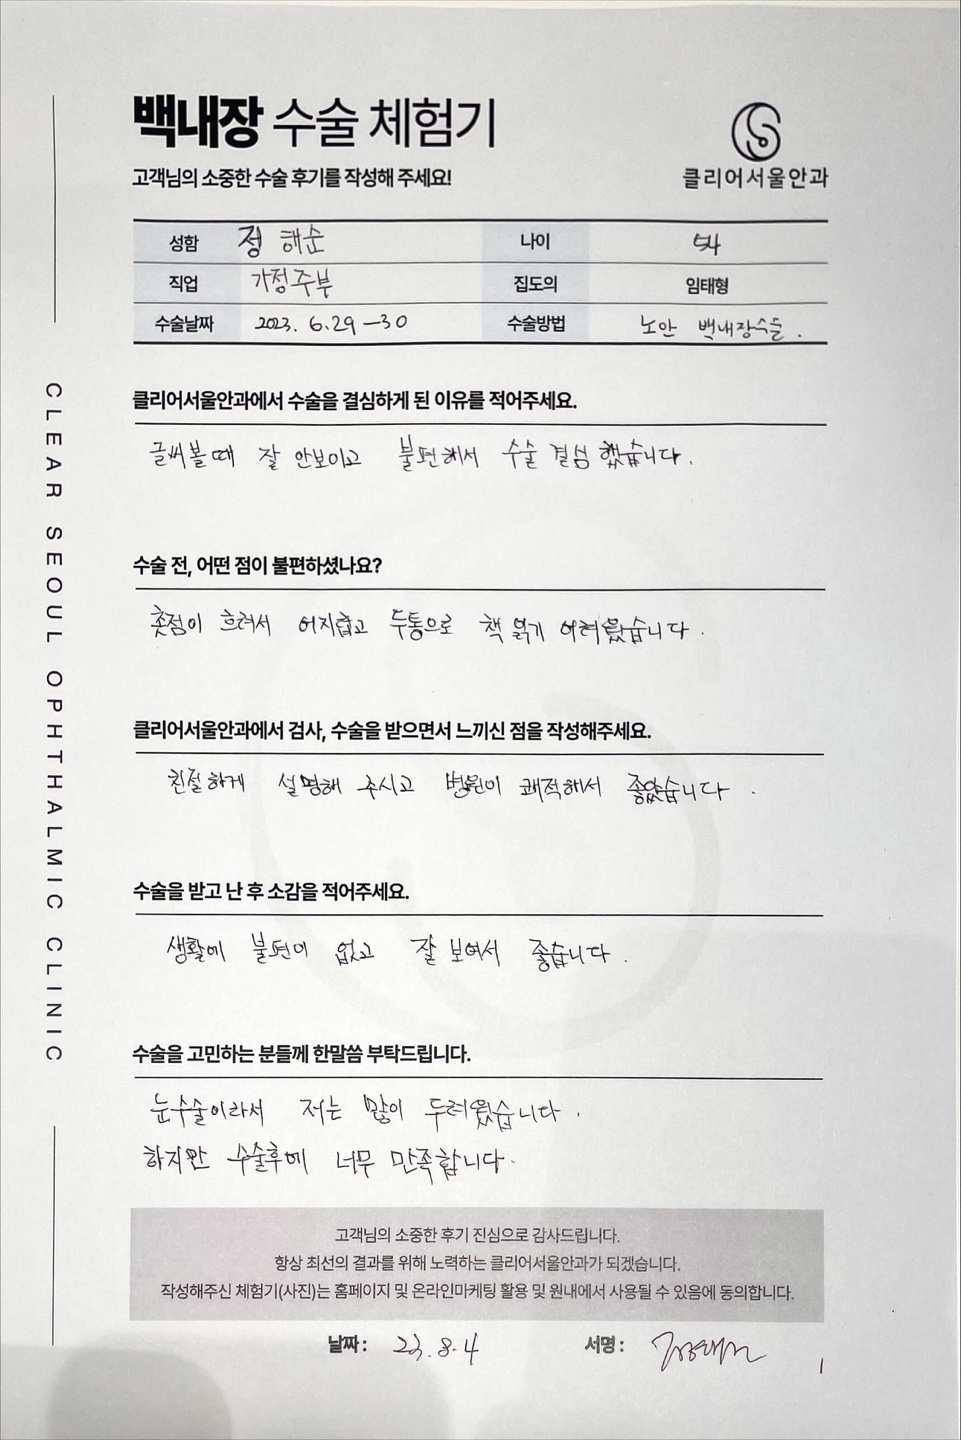 백내장 수술 체험기
고객님의 소중한 수술 후기를 작성해 주세요!
클리어서울안과
성함 정 해순 나이 54
직업 가정주부 집도의 임태형
수술날짜 2023. 6.29-30 수술방법 노안 백내장수술.
클리어서울안과에서 수술을 결심하게 된 이유를 적어주세요.
글씨볼때 잘 안보이고 불편해서 수술 결심 했습니다.
수술 전, 어떤 점이 불편하셨나요?
촛점이 흐려서 어지럽고 두통으로 책 읽기 어려웠습니다.
클리어서울안과에서 검사, 수술을 받으면서 느끼신 점을 작성해주세요.
친절하게 설명해 주시고 병원이 쾌적해서 좋았습니다.
수술을 받고 난 후 소감을 적어주세요.
생활에 불편이 없고 잘 보여서 좋습니다.
수술을 고민하는 분들께 한말씀 부탁드립니다.
눈수술이라서 저는 많이 두려웠습니다.
하지만 수술후에 너무 만족합니다.
고객님의 소중한 후기 진심으로 감사드립니다.
항상 최선의 결과를 위해 노력하는 클리어서울안과가 되겠습니다.
작성해주신 체험기(사진)는 홈페이지 및 온라인마케팅 활용 및 원내에서 사용될 수 있음에 동의합니다.
날짜 : 23.8.4 서명 :
CLEAR SEOUL OPHTHALMIC CLINIC